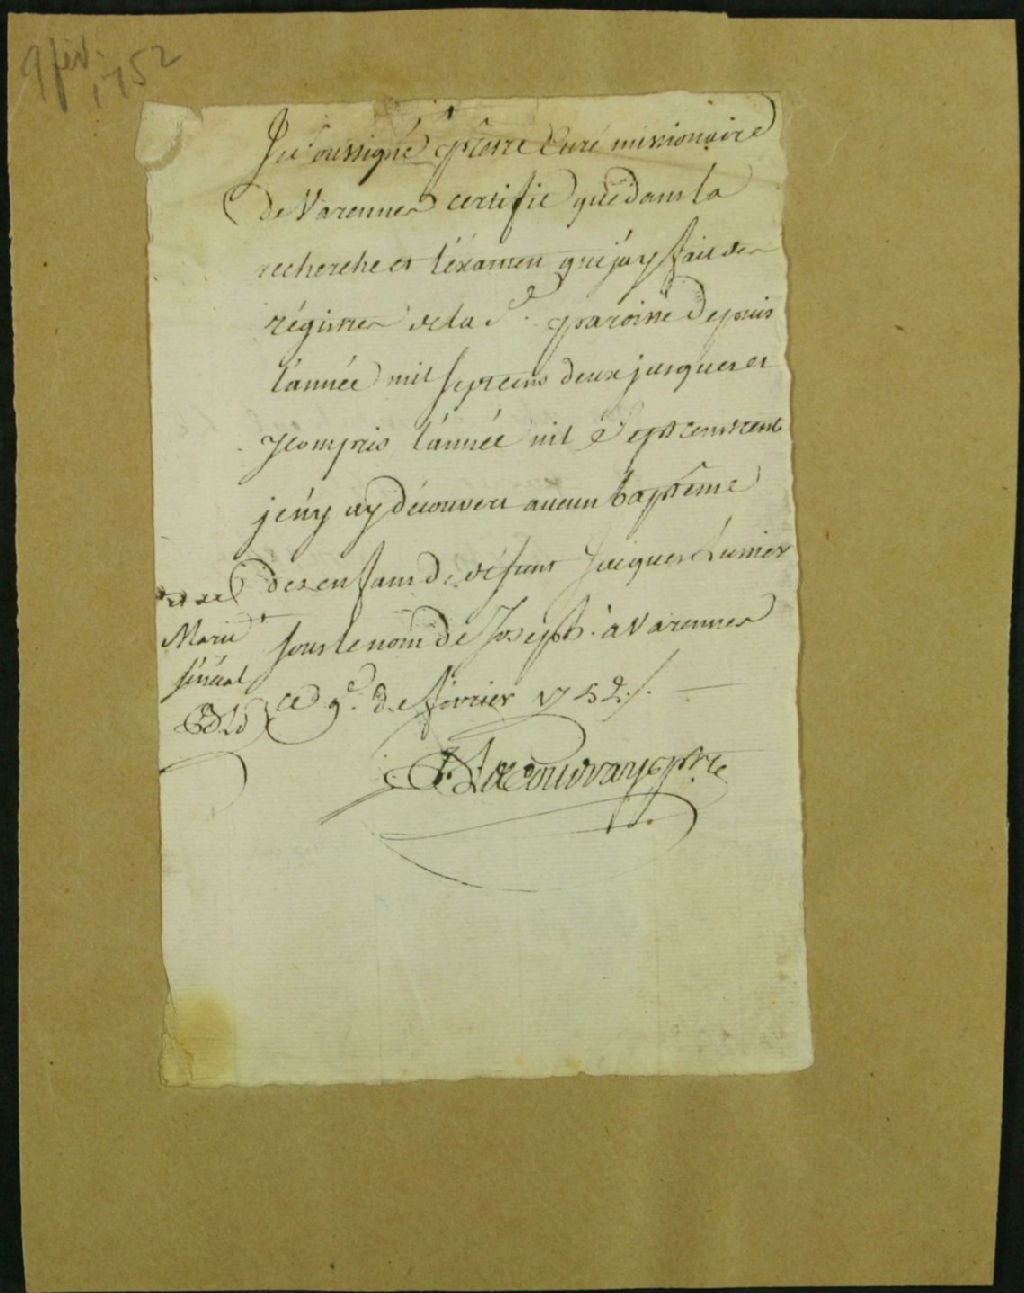 9 fév. 1752
Je soussigné prêtre Curé missionaire
de Varennes certifie que dans la
recherche et l'éxamen que j'ay fait des
régistres de la de. paroisse depuis
l'année mil sept cens deux jusques et
y compris l'année mil Sept cens trente
je n'y ay découvert aucun baptême
des enfans de défunt Jacques Lussier
et de
Marie
sous le nom de Joseph. à Varennes
ce 9e. de février 1752 ./.
ptre